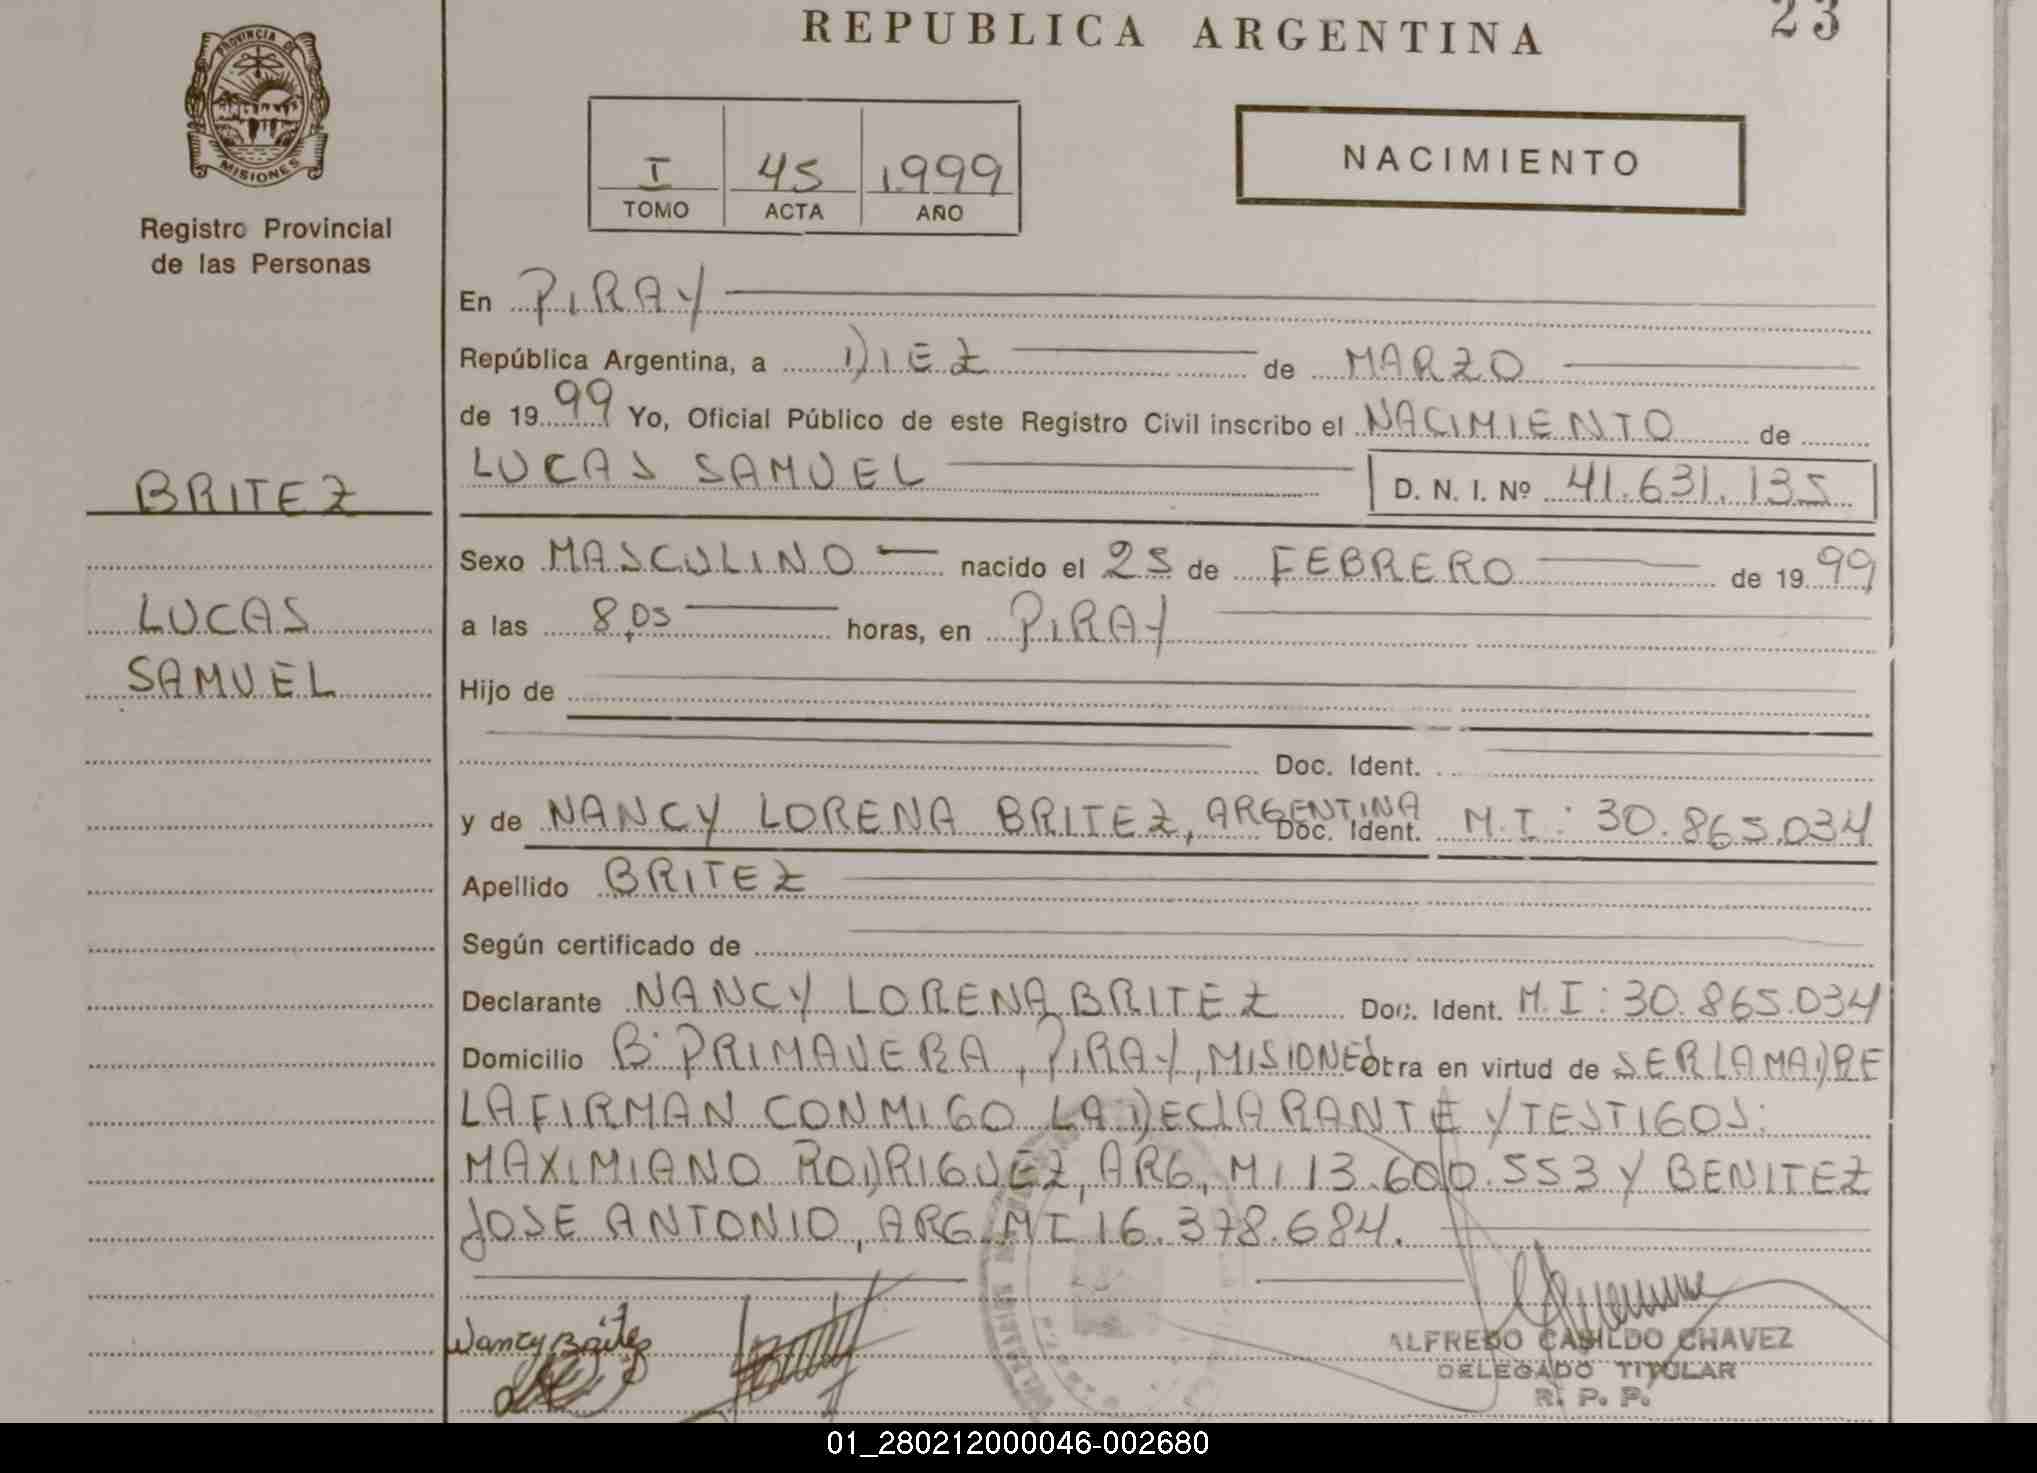 REPUBLICA ARGENTINA
23
PROVINCIA DE
MISIONES
Registro Provincial
de las Personas
I 45 1.999
TOMO ACTA AÑO
NACIMIENTO
En PIRAY
República Argentina, a DIEZ de MARZO
de 19 99 Yo, Oficial Público de este Registro Civil inscribo el NACIMIENTO de
LUCAS SAMUEL D. N. I. Nº 41.631.135
BRITEZ
LUCAS
SAMUEL
Sexo MASCULINO nacido el 25 de FEBRERO de 19 99
a las 8,05 horas, en PIRAY
Hijo de
Doc. Ident.
y de NANCY LORENA BRITEZ, ARGENTINA Doc. Ident. M.I: 30.865.034
Apellido BRITEZ
Según certificado de
Declarante NANCY LORENA BRITEZ Doc. Ident. M.I: 30.865.034
Domicilio Bº PRIMAVERA, PIRAY, MISIONES otra en virtud de SER LA MADRE
LA FIRMAN CONMIGO LA DECLARANTE Y TESTIGOS:
MAXIMIANO RODRIGUEZ, ARG, MI 13.600.553 Y BENITEZ
JOSE ANTONIO, ARG MI 16.378.684.
Nancy Britez
ALFREDO CASILDO CHAVEZ
DELEGADO TITULAR
R. P. P.
01_280212000046-002680